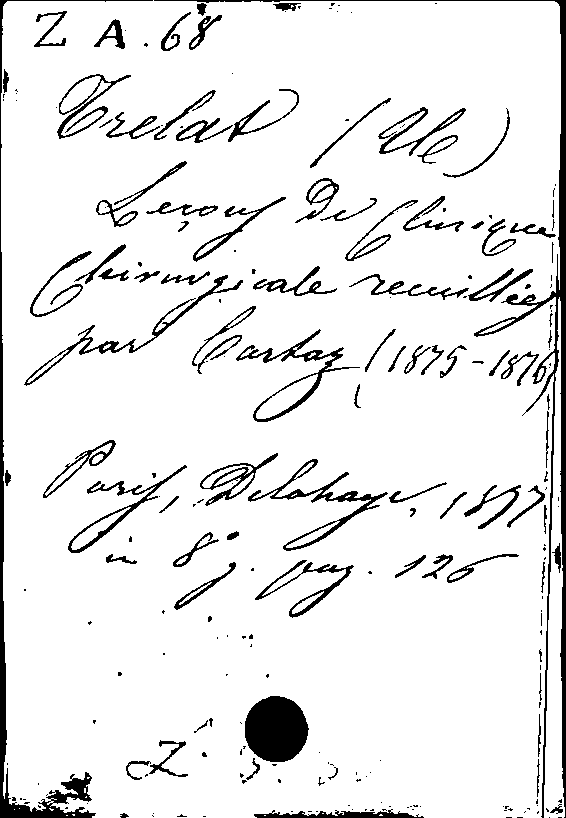 Z A. 68
Trelat (Ule)
Leçons De Clinique
Chirurgicale recueillies
par Cartaz (1875-1876)
Paris, Delahaye, 1877
in 8° g. pag. 126
Z.